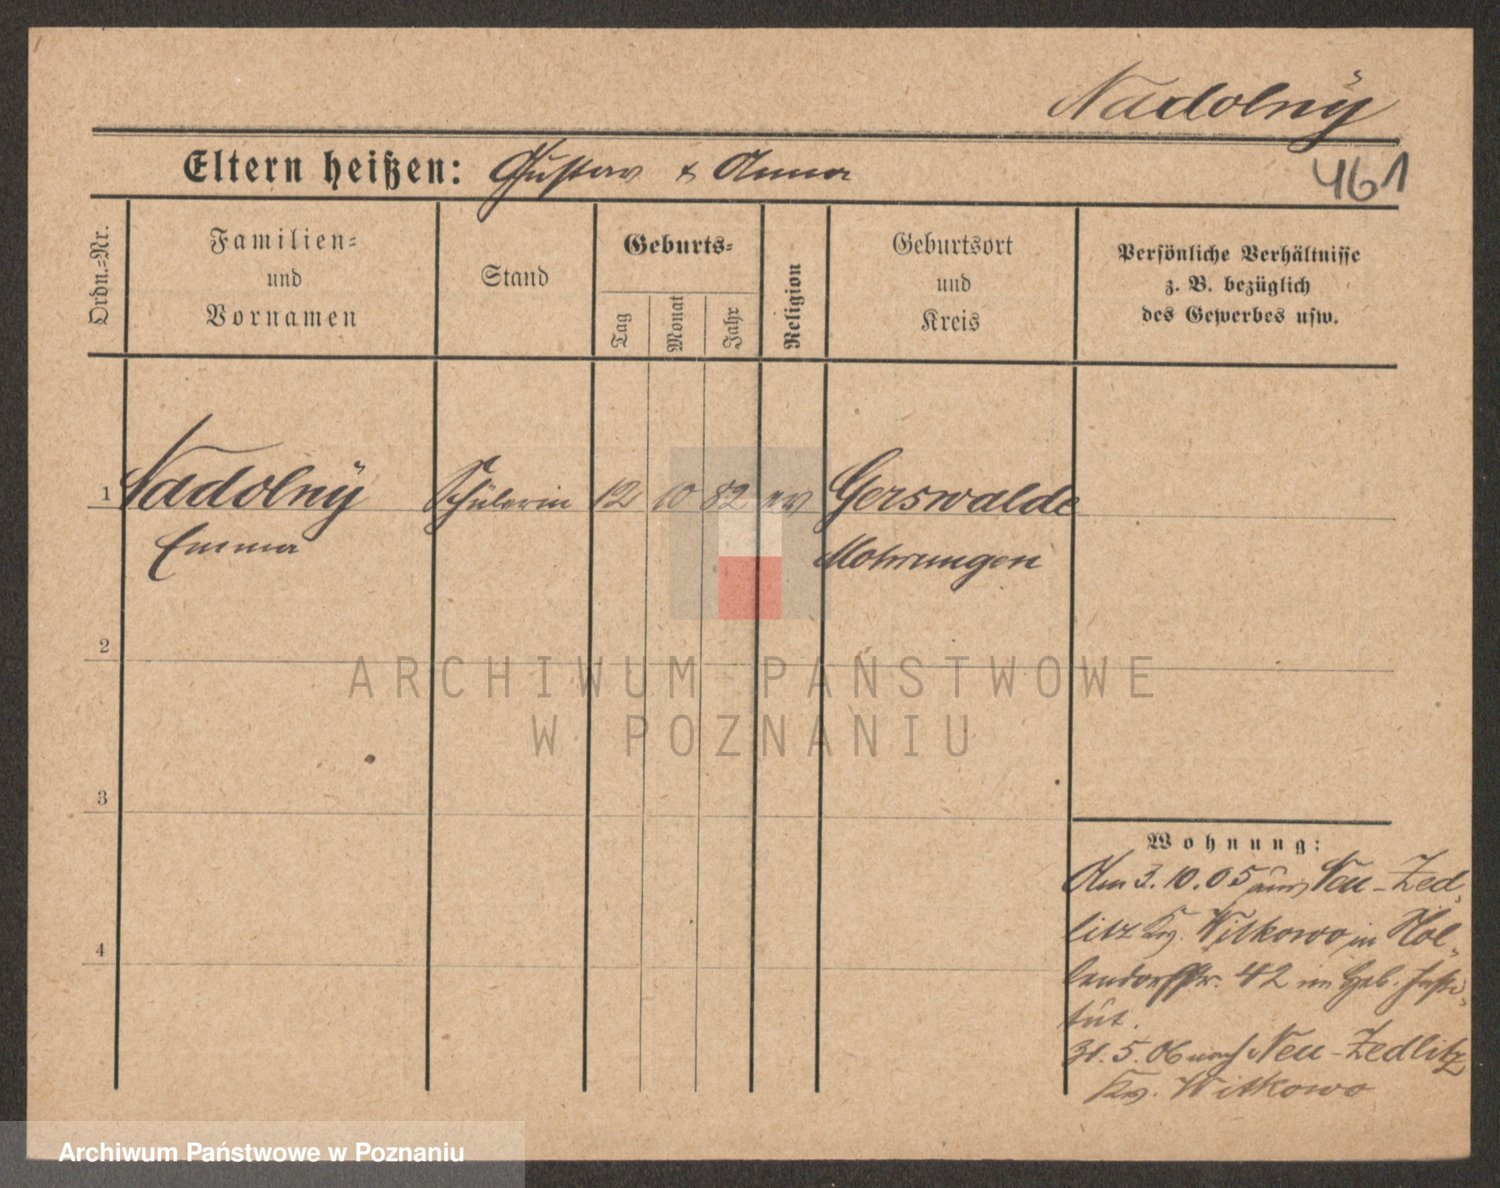 Nadolnÿ
Eltern heißen: Gustav & Anna
461
Ordn.-Nr.
Familien-
und
Vornamen
Stand
Geburts-
Tag
Monat
Jahr
Religion
Geburtsort
und
Kreis
Persönliche Verhältnisse
z. B. bezüglich
des Gewerbes usw.
1 Nadolnÿ Schülerin 12 10 82 ev Gerswalde
Emma Mohrungen
2
3
4
Wohnung:
Am 3.10.05 aus Neu-Zed-
litz Krs. Witkowo in Hol-
lendorffstr. 42 im Heb. Insti-
tut.
31.5.06 nach Neu-Zedlitz
Krs. Witkowo
ARCHIWUM PAŃSTWOWE
W POZNANIU
Archiwum Państwowe w Poznaniu